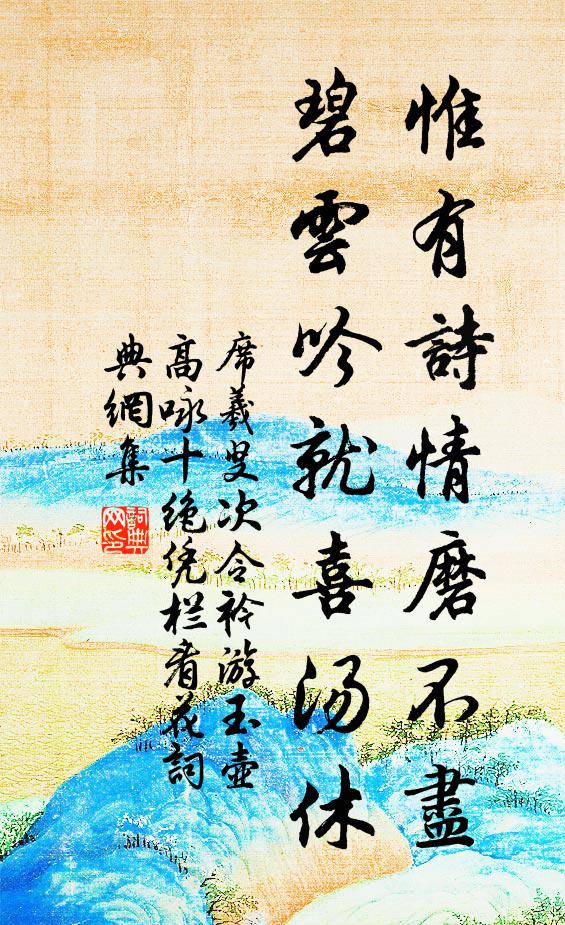 惟有詩情磨不盡
碧雲吟就喜湯休
席羲叟次令衿游玉壶
高咏十绝凭栏看花詞
典網集
詞典
网印